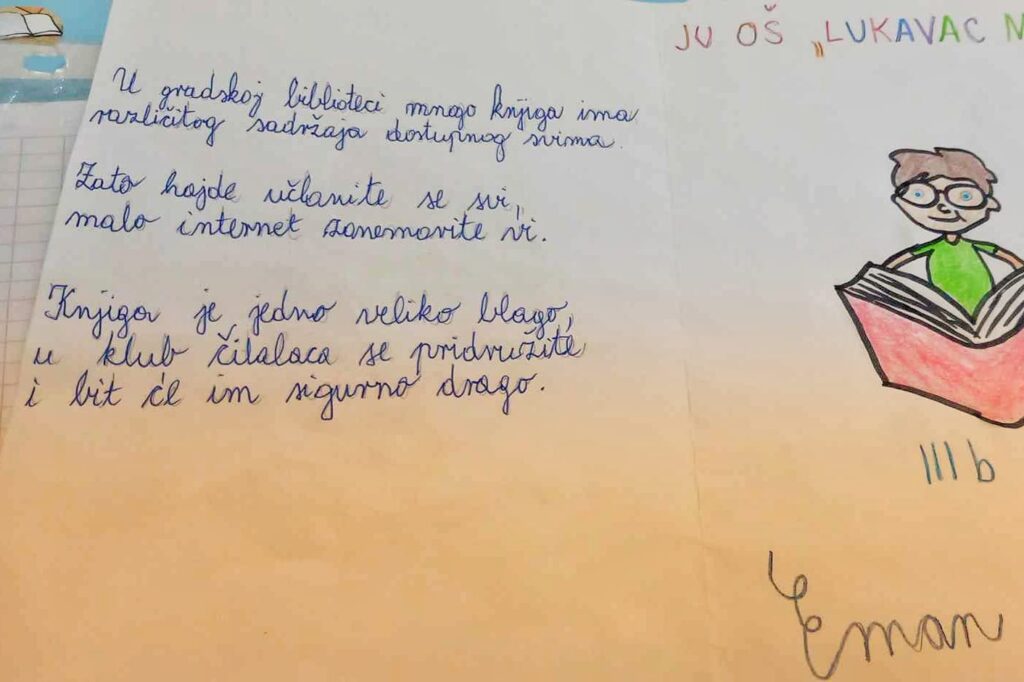 U gradskoj biblioteci mnogo knjiga ima
različitog sadržaja dostupnog svima.
Zato hajde učlanite se svi,
malo internet zanemarite vi.
Knjiga je jedno veliko blago,
u klub čitalaca se pridružite
i bit će im sigurno drago.
JU OŠ „LUKAVAC M
III b
Eman